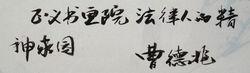 正义书画院 法律人的精
神家园
曹德兆